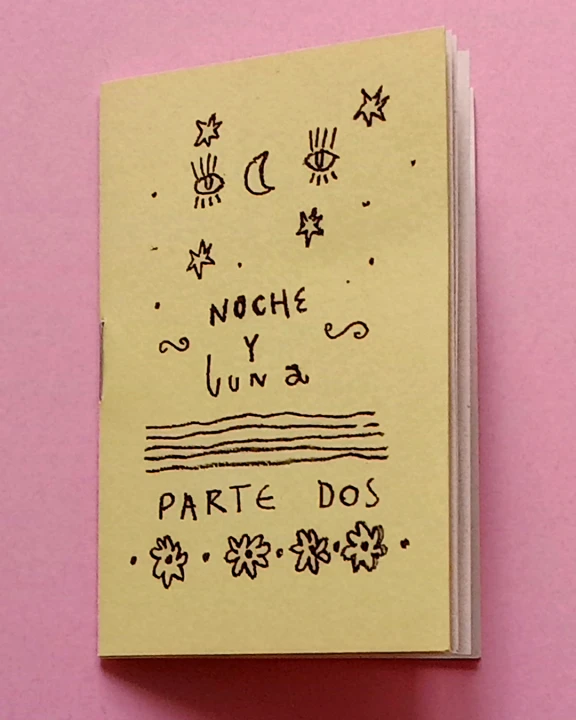 NOCHE
Y
lUNa
PARTE DOS